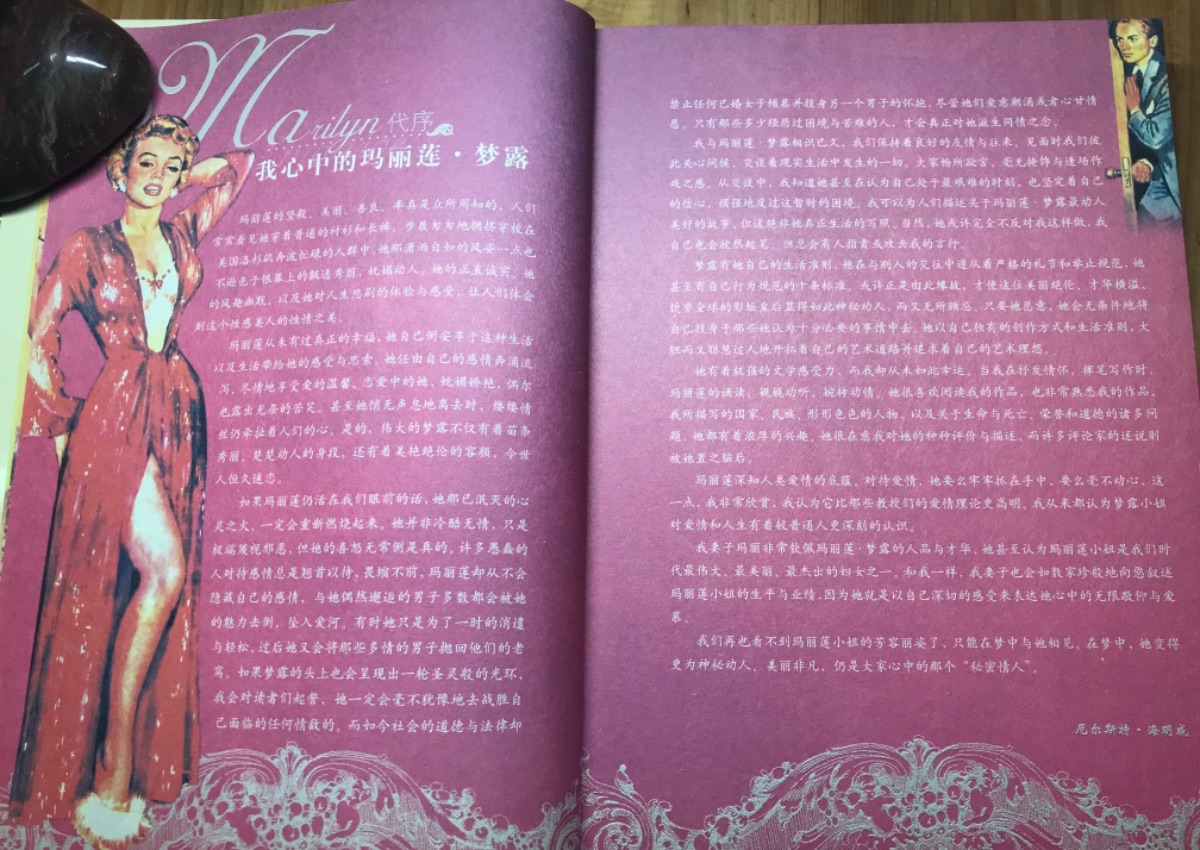 Marilyn 代序
我心中的玛丽莲·梦露
玛丽莲的坚毅、美丽、善良、率真是众所周知的。人们
常常看见她穿着普通的衬衫和长裤，步履匆匆地拥挤穿梭在
美国洛杉矶奔波忙碌的人群中，她那潇洒自如的风姿一点也
不逊色于银幕上的飘逸秀丽、妩媚动人。她的正直诚实，她
的风趣幽默，以及她对人生悲剧的体验与感受，让人们体会
到这个性感美人的性情之美。
玛丽莲从未有过真正的幸福，她自己倒安享于这种生活
以及生活带给她的感受与思索，她任由自己的感情奔涌流
泻，尽情地享受爱的温馨。恋爱中的她，妩媚娇艳，偶尔
也露出无奈的苦笑。甚至她悄无声息地离去时，缕缕情
丝仍牵扯着人们的心。是的，伟大的梦露不仅有着苗条
秀丽、楚楚动人的身段，还有着美艳绝伦的容颜，令世
人恒久迷恋。
如果玛丽莲仍活在我们眼前的话，她那已泯灭的心
灵之火，一定会重新燃烧起来。她并非冷酷无情，只是
极端蔑视邪恶，但她的喜怒无常倒是真的。许多愚蠢的
人对待感情总是翘首以待，畏缩不前，玛丽莲却从不会
隐藏自己的感情，与她偶然邂逅的男子多数都会被她
的魅力击倒，坠入爱河。有时她只是为了一时的消遣
与轻松，过后她又会将那些多情的男子抛回他们的老
窝。如果梦露的头上也会呈现出一轮圣灵般的光环，
我会对读者们起誓，她一定会毫不犹豫地去战胜自
己面临的任何情敌的。而如今社会的道德与法律却
禁止任何已婚女子倾慕并投身另一个男子的怀抱，尽管她们爱意潮涌或者心甘情
愿。只有那些多少经历过困境与苦难的人，才会真正对她滋生同情之念。
我与玛丽莲·梦露相识已久，我们保持着良好的友情与往来。见面时我们彼
此关心问候，交谈着现实生活中发生的一切。大家畅所欲言，毫无掩饰与逢场作
戏之感。从交谈中，我知道她甚至在认为自己处于最艰难的时刻，也坚定着自己
的信心，顽强地度过这暂时的困境。我可以为人们描述关于玛丽莲·梦露最动人
美好的故事，但这绝非她真正生活的写照。当然，她或许完全不反对我这样做，我
自己也会欣然起笔，但总会有人指责或攻击我的言行。
梦露有她自己的生活准则，她在与别人的交往中遵从着严格的礼节和举止规范，她
甚至有自己行为规范的十条标准。或许正是由此缘故，才使这位美丽绝伦、才华横溢、
饮誉全球的影坛皇后显得如此神秘动人，而又无所顾忌。只要她愿意，她会无条件地将
自己投身于那些她认为十分必要的事情中去。她以自己独有的创作方式和生活准则，大
胆而又聪慧过人地开拓着自己的艺术道路并追求着自己的艺术理想。
她有着极强的文学感受力，而我却从未如此幸运。当我在抒发情怀，挥笔写作时，
玛丽莲的诵读，娓娓动听、婉转动情。她很喜欢阅读我的作品，也非常熟悉我的作品，
我所描写的国家、民族，形形色色的人物，以及关于生命与死亡、荣誉和道德的诸多问
题，她都有着浓厚的兴趣。她很在意我对她的种种评价与描述，而许多评论家的述说则
被她置之脑后。
玛丽莲深知人类爱情的底蕴，对待爱情，她要么牢牢抓在手中，要么毫不动心，这
一点，我非常欣赏，我认为它比那些教授们的爱情理论更高明。我从来都认为梦露小姐
对爱情和人生有着较普通人更深刻的认识。
我妻子玛丽非常钦佩玛丽莲·梦露的人品与才华，她甚至认为玛丽莲小姐是我们时
代最伟大、最美丽、最杰出的妇女之一。和我一样，我妻子也会如数家珍般地向您叙述
玛丽莲小姐的生平与业绩，因为她就是以自己深切的感受来表达她心中的无限敬仰与爱
慕。
我们再也看不到玛丽莲小姐的芳容丽姿了，只能在梦中与她相见。在梦中，她变得
更为神秘动人、美丽非凡，仍是大家心中的那个“秘密情人”。
厄尔斯特·海明威